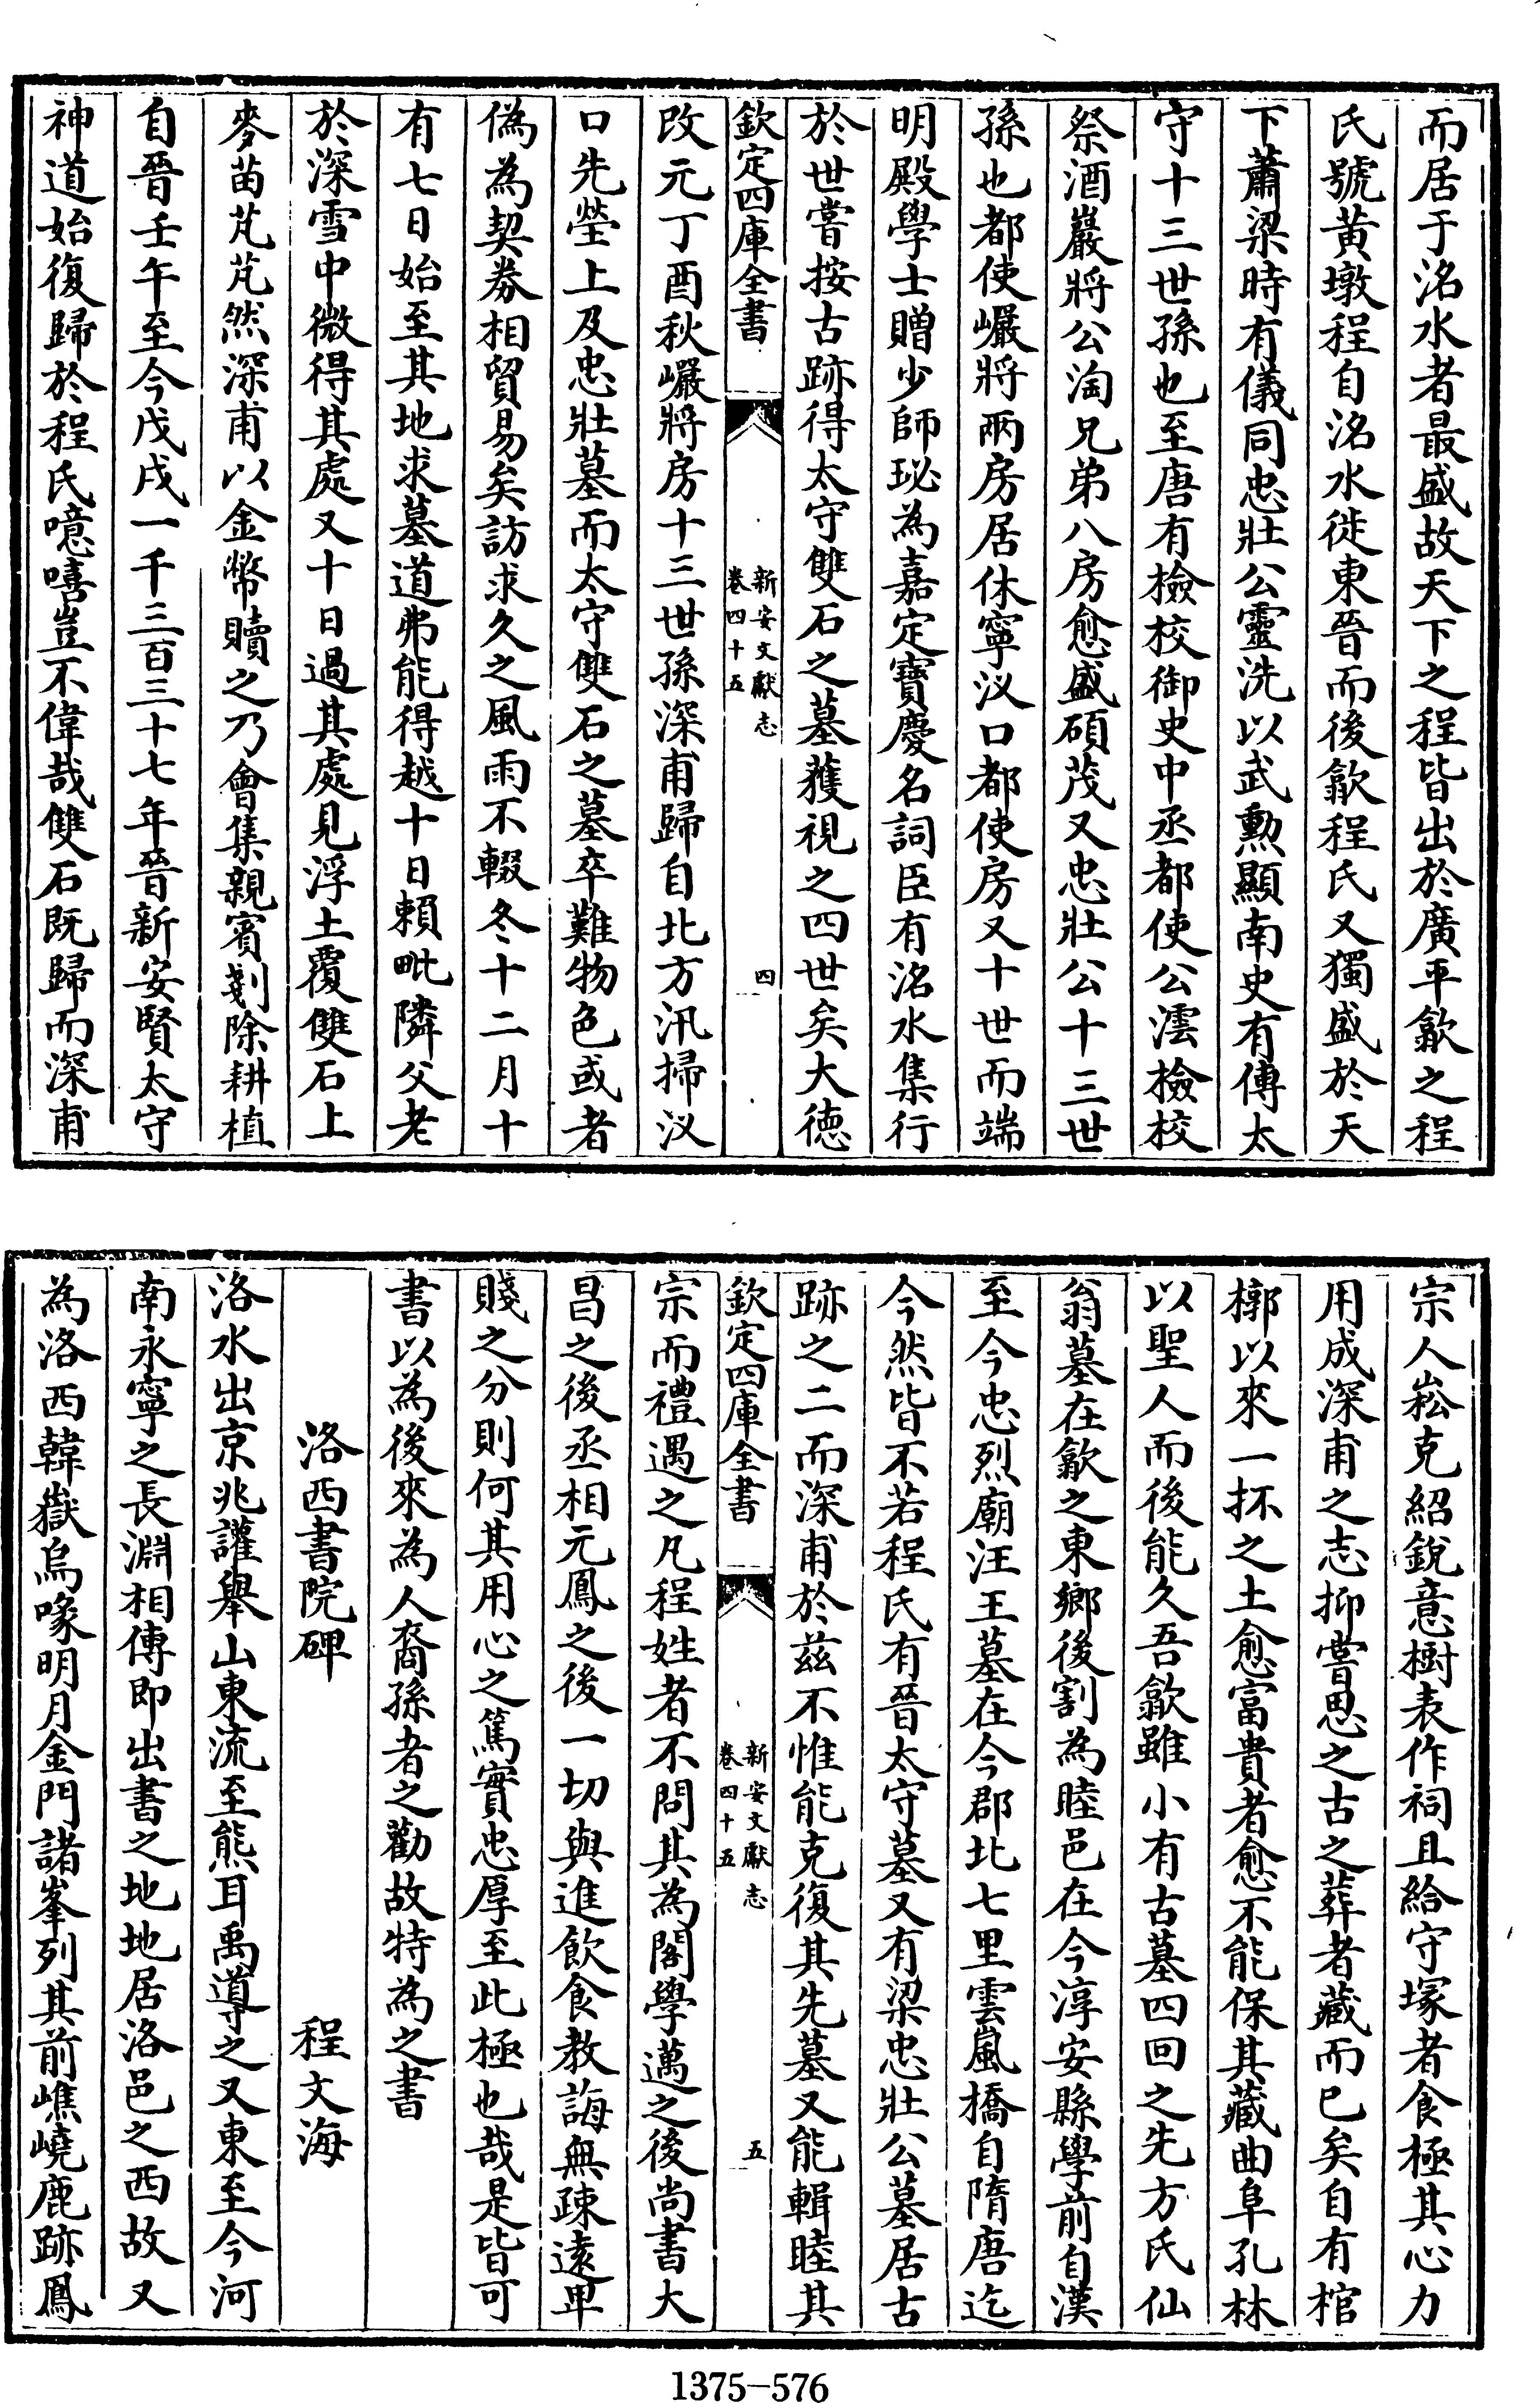 而居于洺水者最盛故天下之程皆出於廣平歙之程
氏號黃墩程自洺水徙東晉而後歙程氏又獨盛於天
下蕭梁時有儀同忠壯公靈洗以武勲顯南史有傳太
守十三世孫也至唐有檢校御史中丞都使公澐檢校
祭酒巖將公淘兄弟八房愈盛碩茂又忠壯公十三世
孫也都使巗將兩房居休寧汊口都使房又十世而端
明殿學士贈少師珌為嘉定寳慶名詞臣有洺水集行
於世嘗按古跡得太守雙石之墓䕶視之四世矣大徳
欽定四庫全書
新安文獻志
卷四十五
四
改元丁酉秋巗將房十三世孫深甫歸自北方汛掃汊
口先塋上及忠壯墓而太守雙石之墓卒難物色或者
偽為契劵相貿易矣訪求久之風雨不輟冬十二月十
有七日始至其地求墓道弗能得越十日頼毗隣父老
於深雪中微得其處又十日過其處見浮土覆雙石上
麥苗芃芃然深甫以金幣贖之乃會集親賓剗除耕植
自晉壬午至今戊戌一千三百三十七年晉新安賢太守
神道始復歸於程氏噫嘻豈不偉哉雙石既歸而深甫
宗人崧克紹銳意樹表作祠且給守塚者食極其心力
用成深甫之志抑嘗思之古之葬者藏而已矣自有棺
槨以來一抔之土愈富貴者愈不能保其藏曲阜孔林
以聖人而後能久吾歙雖小有古墓四回之先方氏仙
翁墓在歙之東鄉後割為睦邑在今淳安縣學前自漢
至今忠烈廟汪王墓在今郡北七里雲嵐橋自隋唐迄
今然皆不若程氏有晉太守墓又有梁忠壯公墓居古
跡之二而深甫於兹不惟能克復其先墓又能輯睦其
欽定四庫全書
新安文獻志
卷四十五
五
宗而禮遇之凡程姓者不問其為閣學邁之後尚書大
昌之後丞相元鳳之後一切與進飲食教誨無疎逺卑
賤之分則何其用心之篤實忠厚至此極也哉是皆可
書以為後來為人裔孫者之勸故特為之書
洛西書院碑
程文海
洛水出京兆讙舉山東流至熊耳禹導之又東至今河
南永寧之長淵相傳即出書之地地居洛邑之西故又
為洛西韓嶽烏喙明月金門諸峯列其前嶕嶢鹿跡鳳
1375-576